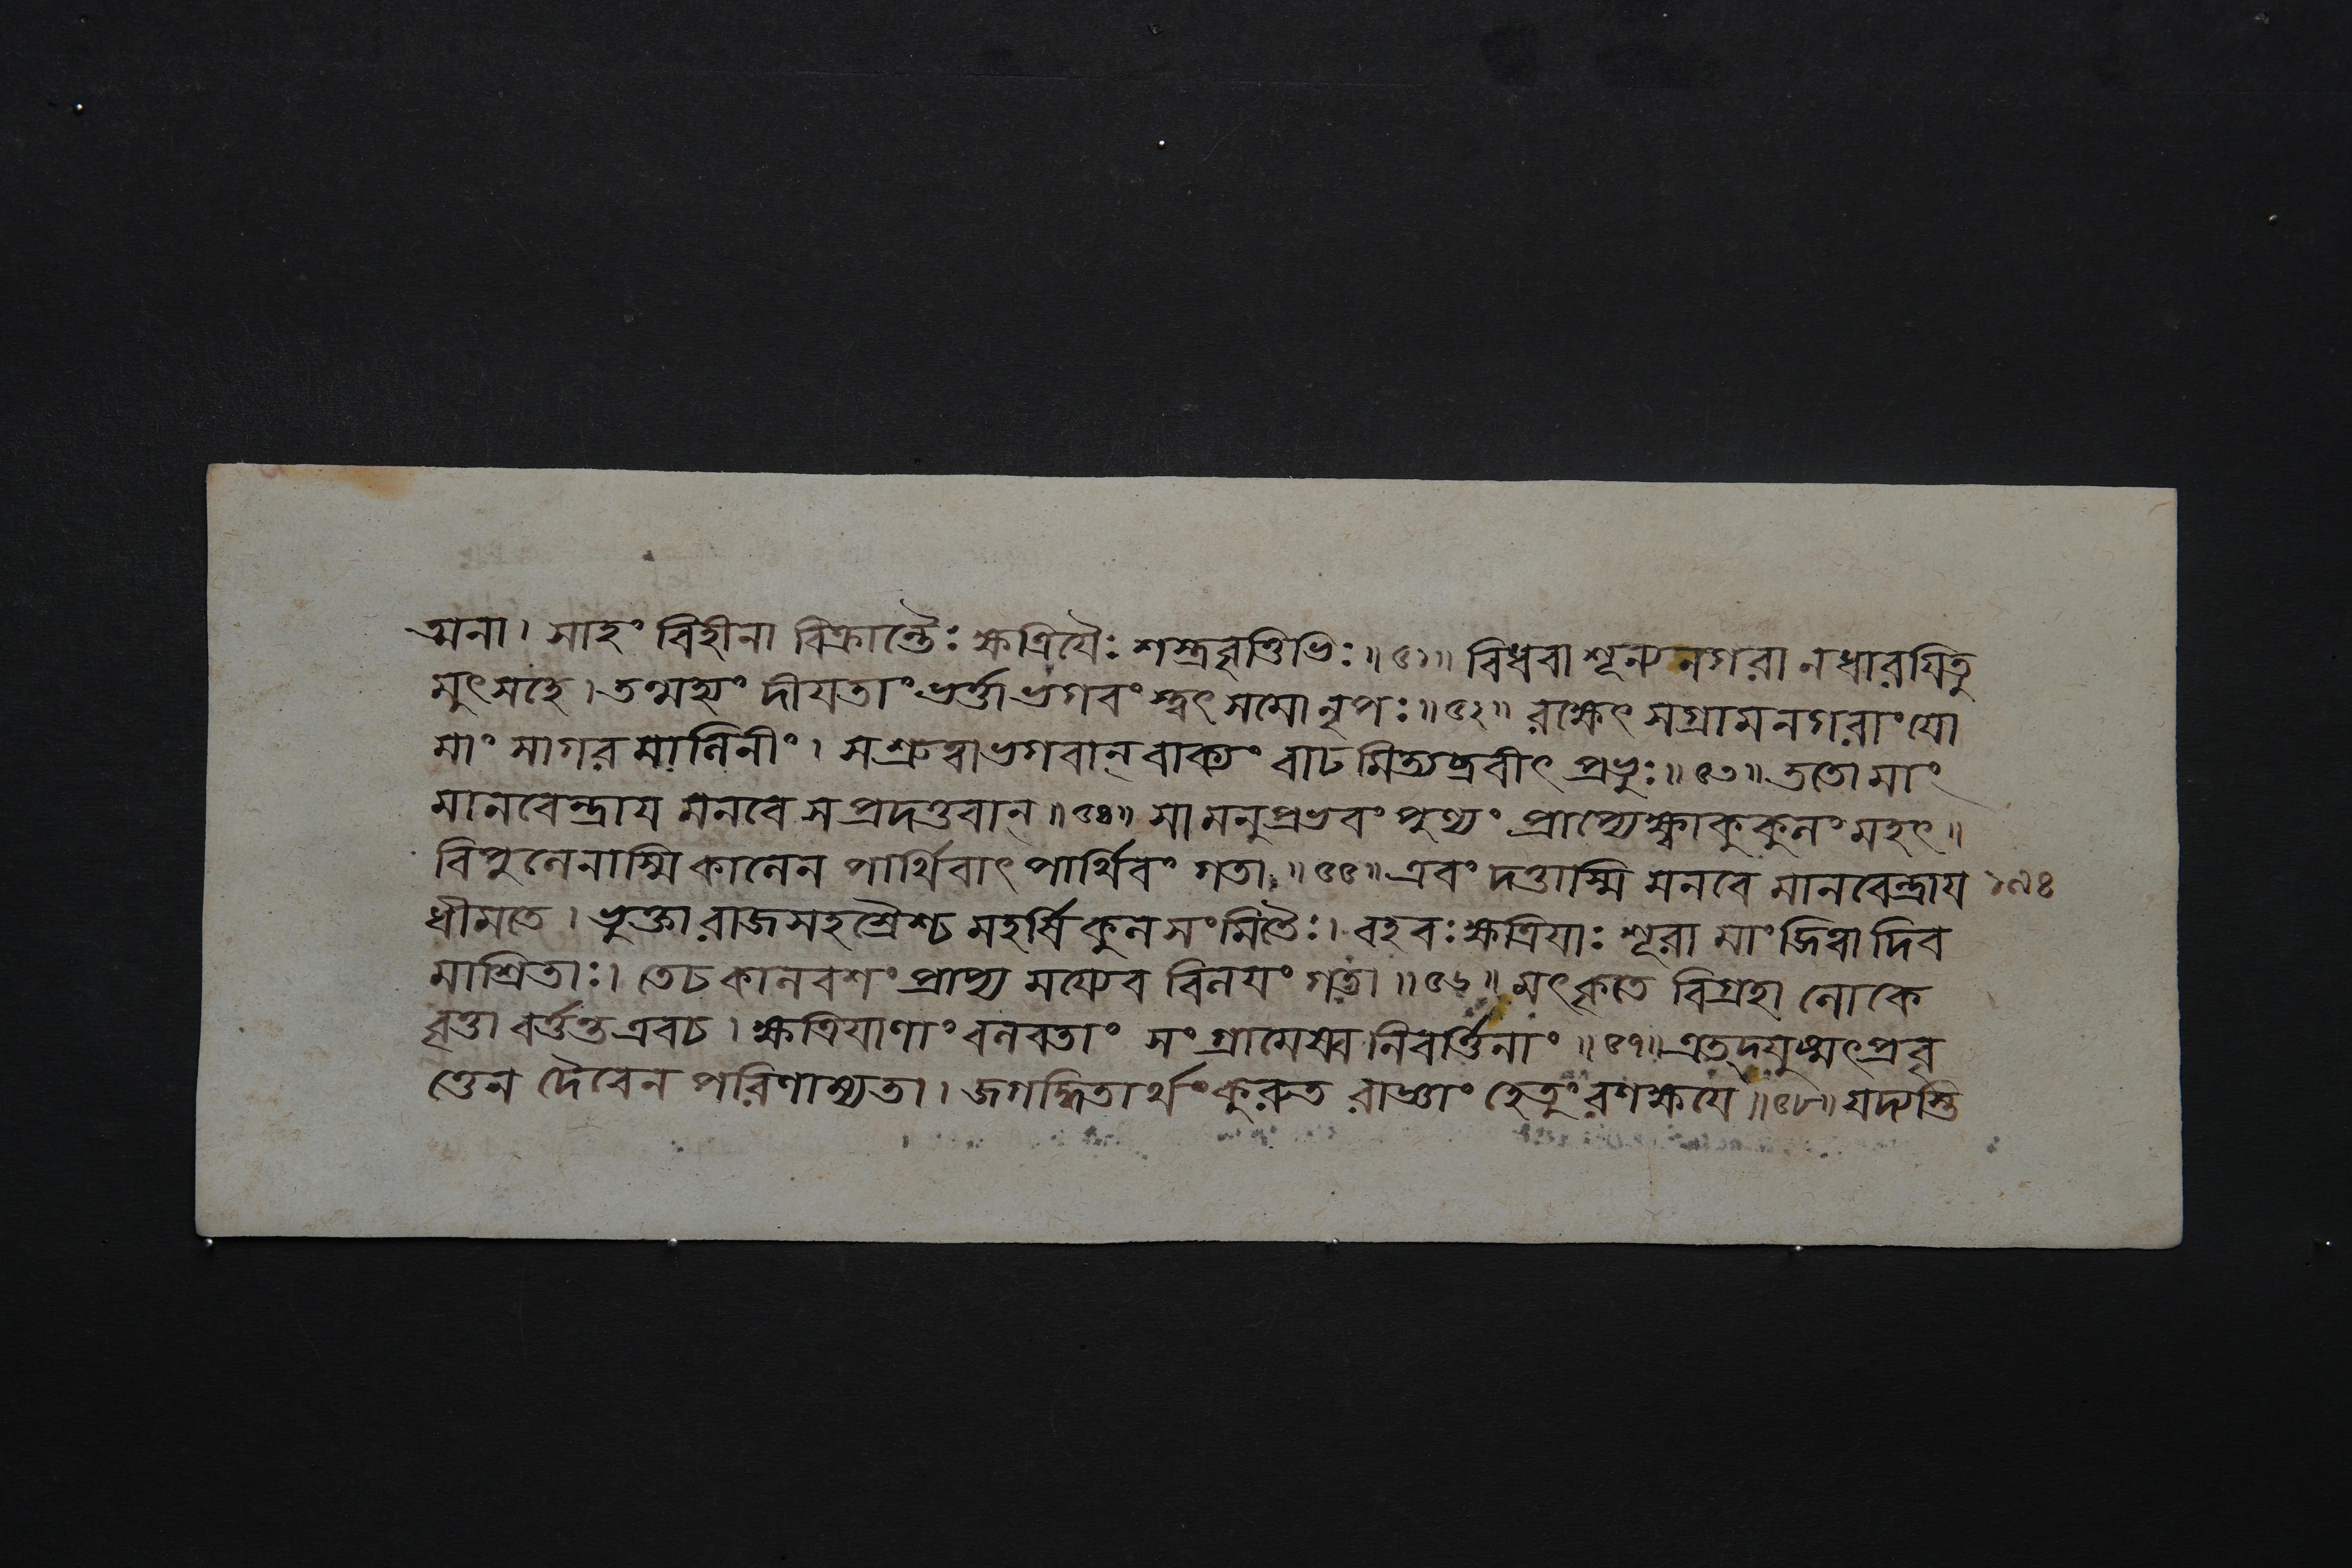 ত্মনা। সাহং বিহীনা বিক্রান্তৈঃ ক্ষত্রিযৈঃ শস্ত্রবৃত্তিভিঃ॥৫১॥ বিধবা শূন্যনগরা নধারযিতু
মুৎসহে। তন্মহ্যং দীযতাং ভর্ত্তা ভগবং স্ত্বৎ সমো নৃপঃ॥৫২॥ রক্ষেৎ সগ্রামনগরাং যো
মাং সাগরমালিনীং। সশ্রুত্বাভগবান্ বাক্যং বাঢমিত্যব্রবীৎ প্রভুঃ॥৫৩॥ ততো মাং
মানবেন্দ্রায মনবে সপ্রদত্তবান্॥৫৪॥ সা মনুপ্রভবং পুণ্যং প্রাপ্যেক্ষ্বাকুকুলং মহৎ॥
বিপুলেনাস্মি কালেন পার্থিবাৎ পার্থিবং গতা॥৫৫॥ এবং দত্তাস্মি মনবে মানবেন্দ্রায
ধীমতে। ভুক্তা রাজসহশ্রৈশ্চ মহর্ষিকুলসংমিতৈঃ। বহবঃ ক্ষত্রিযাঃ শূরা মাং জিত্বা দিব
মাশ্রিতাঃ। তেচ কালবশং প্রাপ্য ময্যেব বিলযং গতা॥৫৬॥ মৎকৃতে বিগ্রহা লোকে
বৃত্তা বর্ত্তন্ত এবচ। ক্ষত্রিযাণাং বলবতাং সংগ্রামেষ্ব নিবর্ত্তিনাং॥৫৭॥ এতদ্যুষ্মৎপ্রবৃ
ত্তেন দৈবেন পরিণাম্যতা। জগদ্ধিতার্থং কুরুত রাজ্ঞাং হেতুং রণক্ষযে॥৫৮॥ যদ্যস্তি